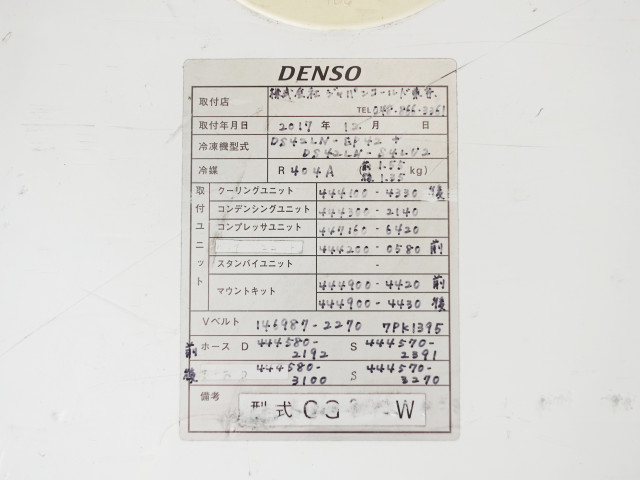 DENSO
取付店 株式会社ジャパンコールド東京
TEL 049-866-3361
取付年月日 2017 年 12 月 日
冷凍機型式 DS42LN-
DS42LN-
冷媒 R 404A (前 1.55 後 1.35 kg)
取付ユニット
クーリングユニット 444100-4330 後
コンデンシングユニット 444300-2140
コンプレッサユニット 447160-6420
444200-0580 前
スタンバイユニット -
マウントキット 444900-4420 前
444900-4430 後
Vベルト 146987-2270 7PK1395
前 ホース D 444580-2192 S 444570-2391
後 444580-3100 S 444570-3270
備考 型式 CG W